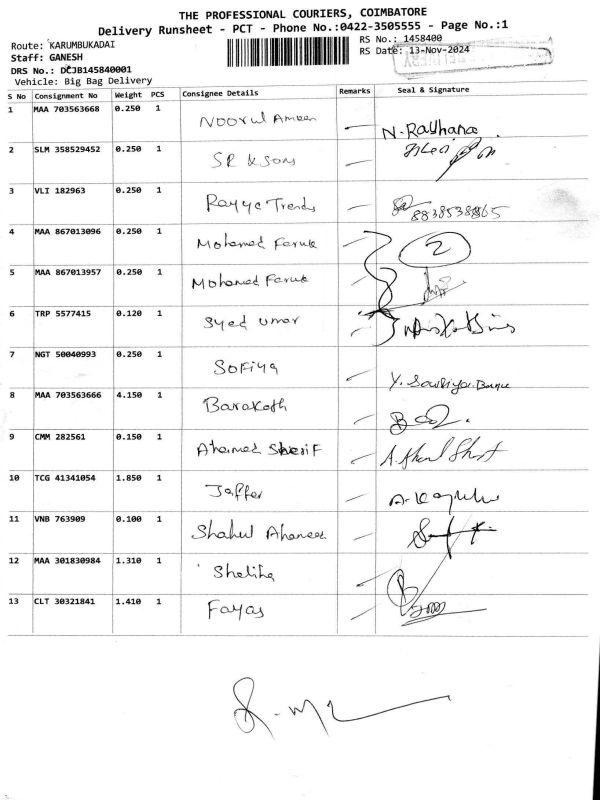 THE PROFESSIONAL COURIERS, COIMBATORE
Delivery Runsheet - PCT - Phone No.:0422-3505555 - Page No.:1
Route: KARUMBUKADAI
RS No.: 1458400
Staff: GANESH
RS Date: 13-Nov-2024
DELIVERY
DRS No.: DCJB145840001
Vehicle: Big Bag Delivery
S No Consignment No Weight PCS Consignee Details Remarks Seal & Signature
1 MAA 703563668 0.250 1 Noorul Ameen N.Rayhana
2 SLM 358529452 0.250 1 SR & Sons
3 VLI 182963 0.250 1 Rayya Trends
4 MAA 867013096 0.250 1 Mohamed Faruk 2
5 MAA 867013957 0.250 1 Mohamed Faruk
6 TRP 5577415 0.120 1 Syed Umar
7 NGT 50040993 0.250 1 Sofiya
8 MAA 703563666 4.150 1 Barakath
9 CMM 282561 0.150 1 Ahamed Sherif
10 TCG 41341054 1.850 1 Jaffer
11 VNB 763909 0.100 1 Shahul Ahameed
12 MAA 301830984 1.310 1 Shaliha
13 CLT 30321841 1.410 1 Fayas